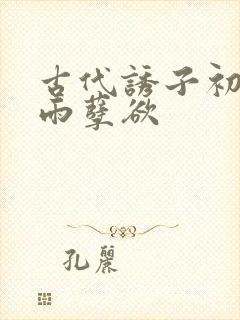 古代誘子初
雨孽欲
孔麗